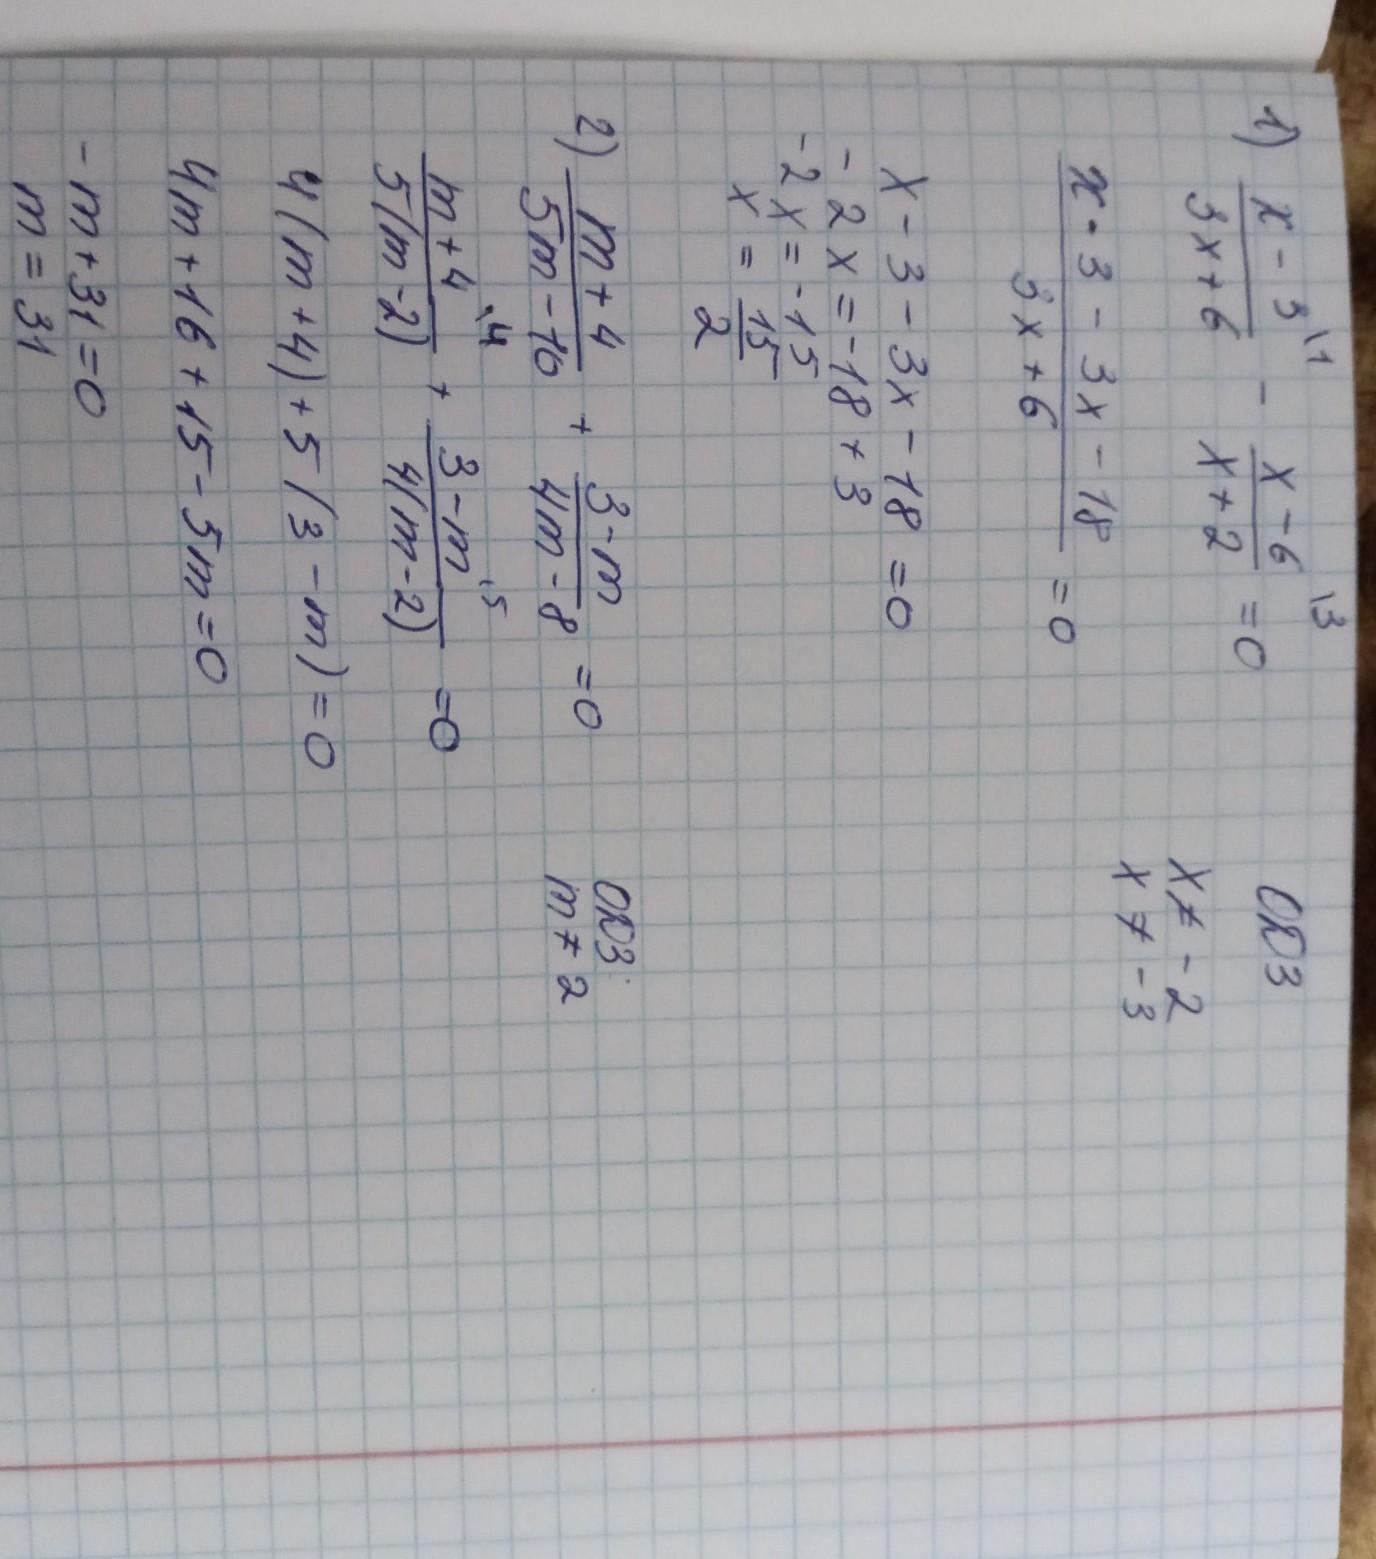 1) x - 3 \1 / 3x + 6 - x - 6 \3 / x + 2 = 0 ОДЗ
x ≠ -2
x ≠ -3
x - 3 - 3x - 18 / 3x + 6 = 0
x - 3 - 3x - 18 = 0
- 2x = -18 + 3
- 2x = -15
x = 15 / 2
2) m + 4 / 5m - 10 + 3 - m / 4m - 8 = 0 ОДЗ:
m ≠ 2
m + 4 \4 / 5(m - 2) + 3 - m \5 / 4(m - 2) = 0
4(m + 4) + 5(3 - m) = 0
4m + 16 + 15 - 5m = 0
- m + 31 = 0
m = 31